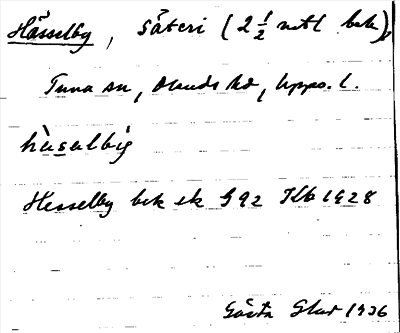 Hässelby, säteri (2 1/2 mtl bek),
Tuna sn, Olands hd, Upps. l.
häsəlbig
Hesselby bek sk G 92 Klb 1928
Gösta 1936